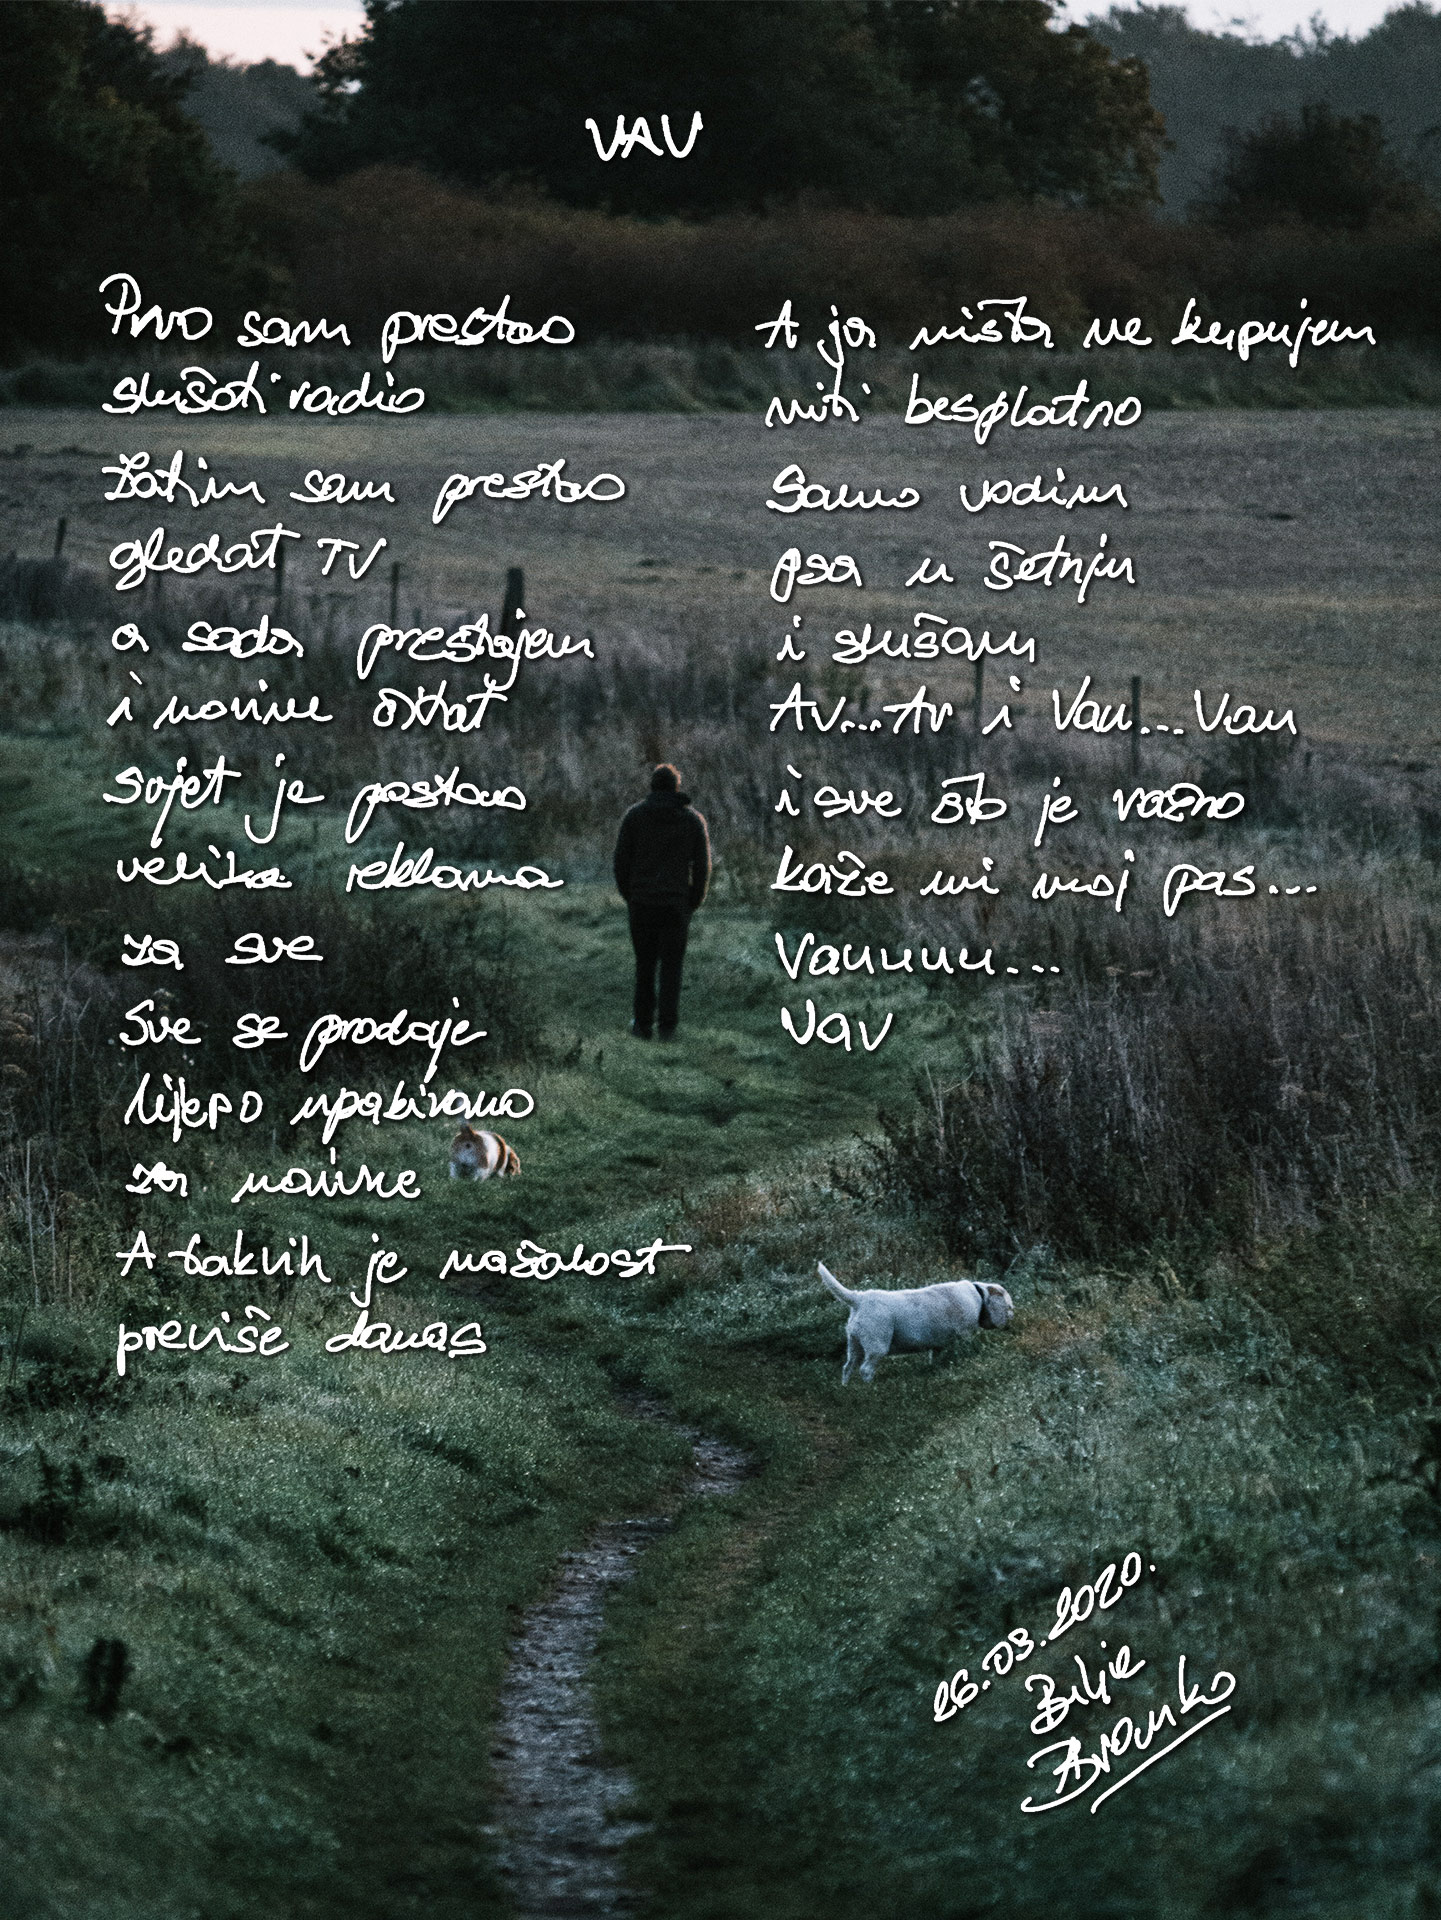 VAV
Prvo sam prestao
slušati radio
Zatim sam prestao
gledat TV
a sada prestajem
i novine čitat
svjet je postao
velika reklama
za sve
Sve se prodaje
lijepo upakirano
za naivne
A takvih je nažalost
previše danas
A ja ništa ne kupujem
niti besplatno
Samo vodim
psa u šetnju
i slušam
Av...Av i Vau...Vau
i sve što je važno
kaže mi moj pas...
Vauuuu...
Vav
26.03.2020.
Branko